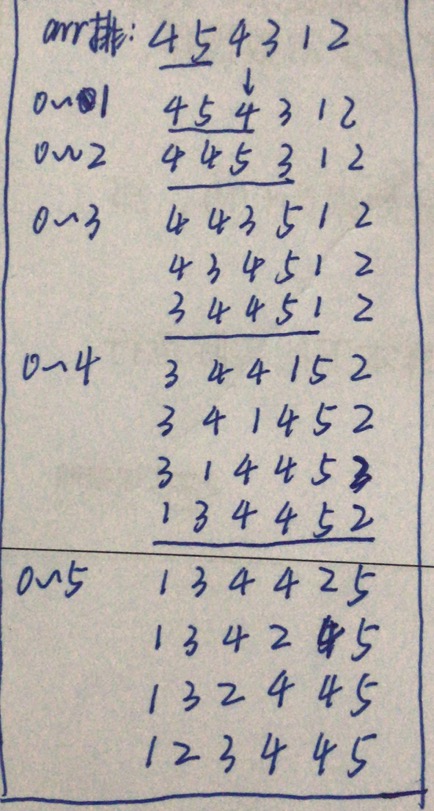 arr排: 4 5 4 3 1 2
0~1 4 5 4 3 1 2
0~2 4 4 5 3 1 2
0~3 4 4 3 5 1 2
4 3 4 5 1 2
3 4 4 5 1 2
0~4 3 4 4 1 5 2
3 4 1 4 5 2
3 1 4 4 5 3
1 3 4 4 5 2
0~5 1 3 4 4 2 5
1 3 4 2 4 5
1 3 2 4 4 5
1 2 3 4 4 5